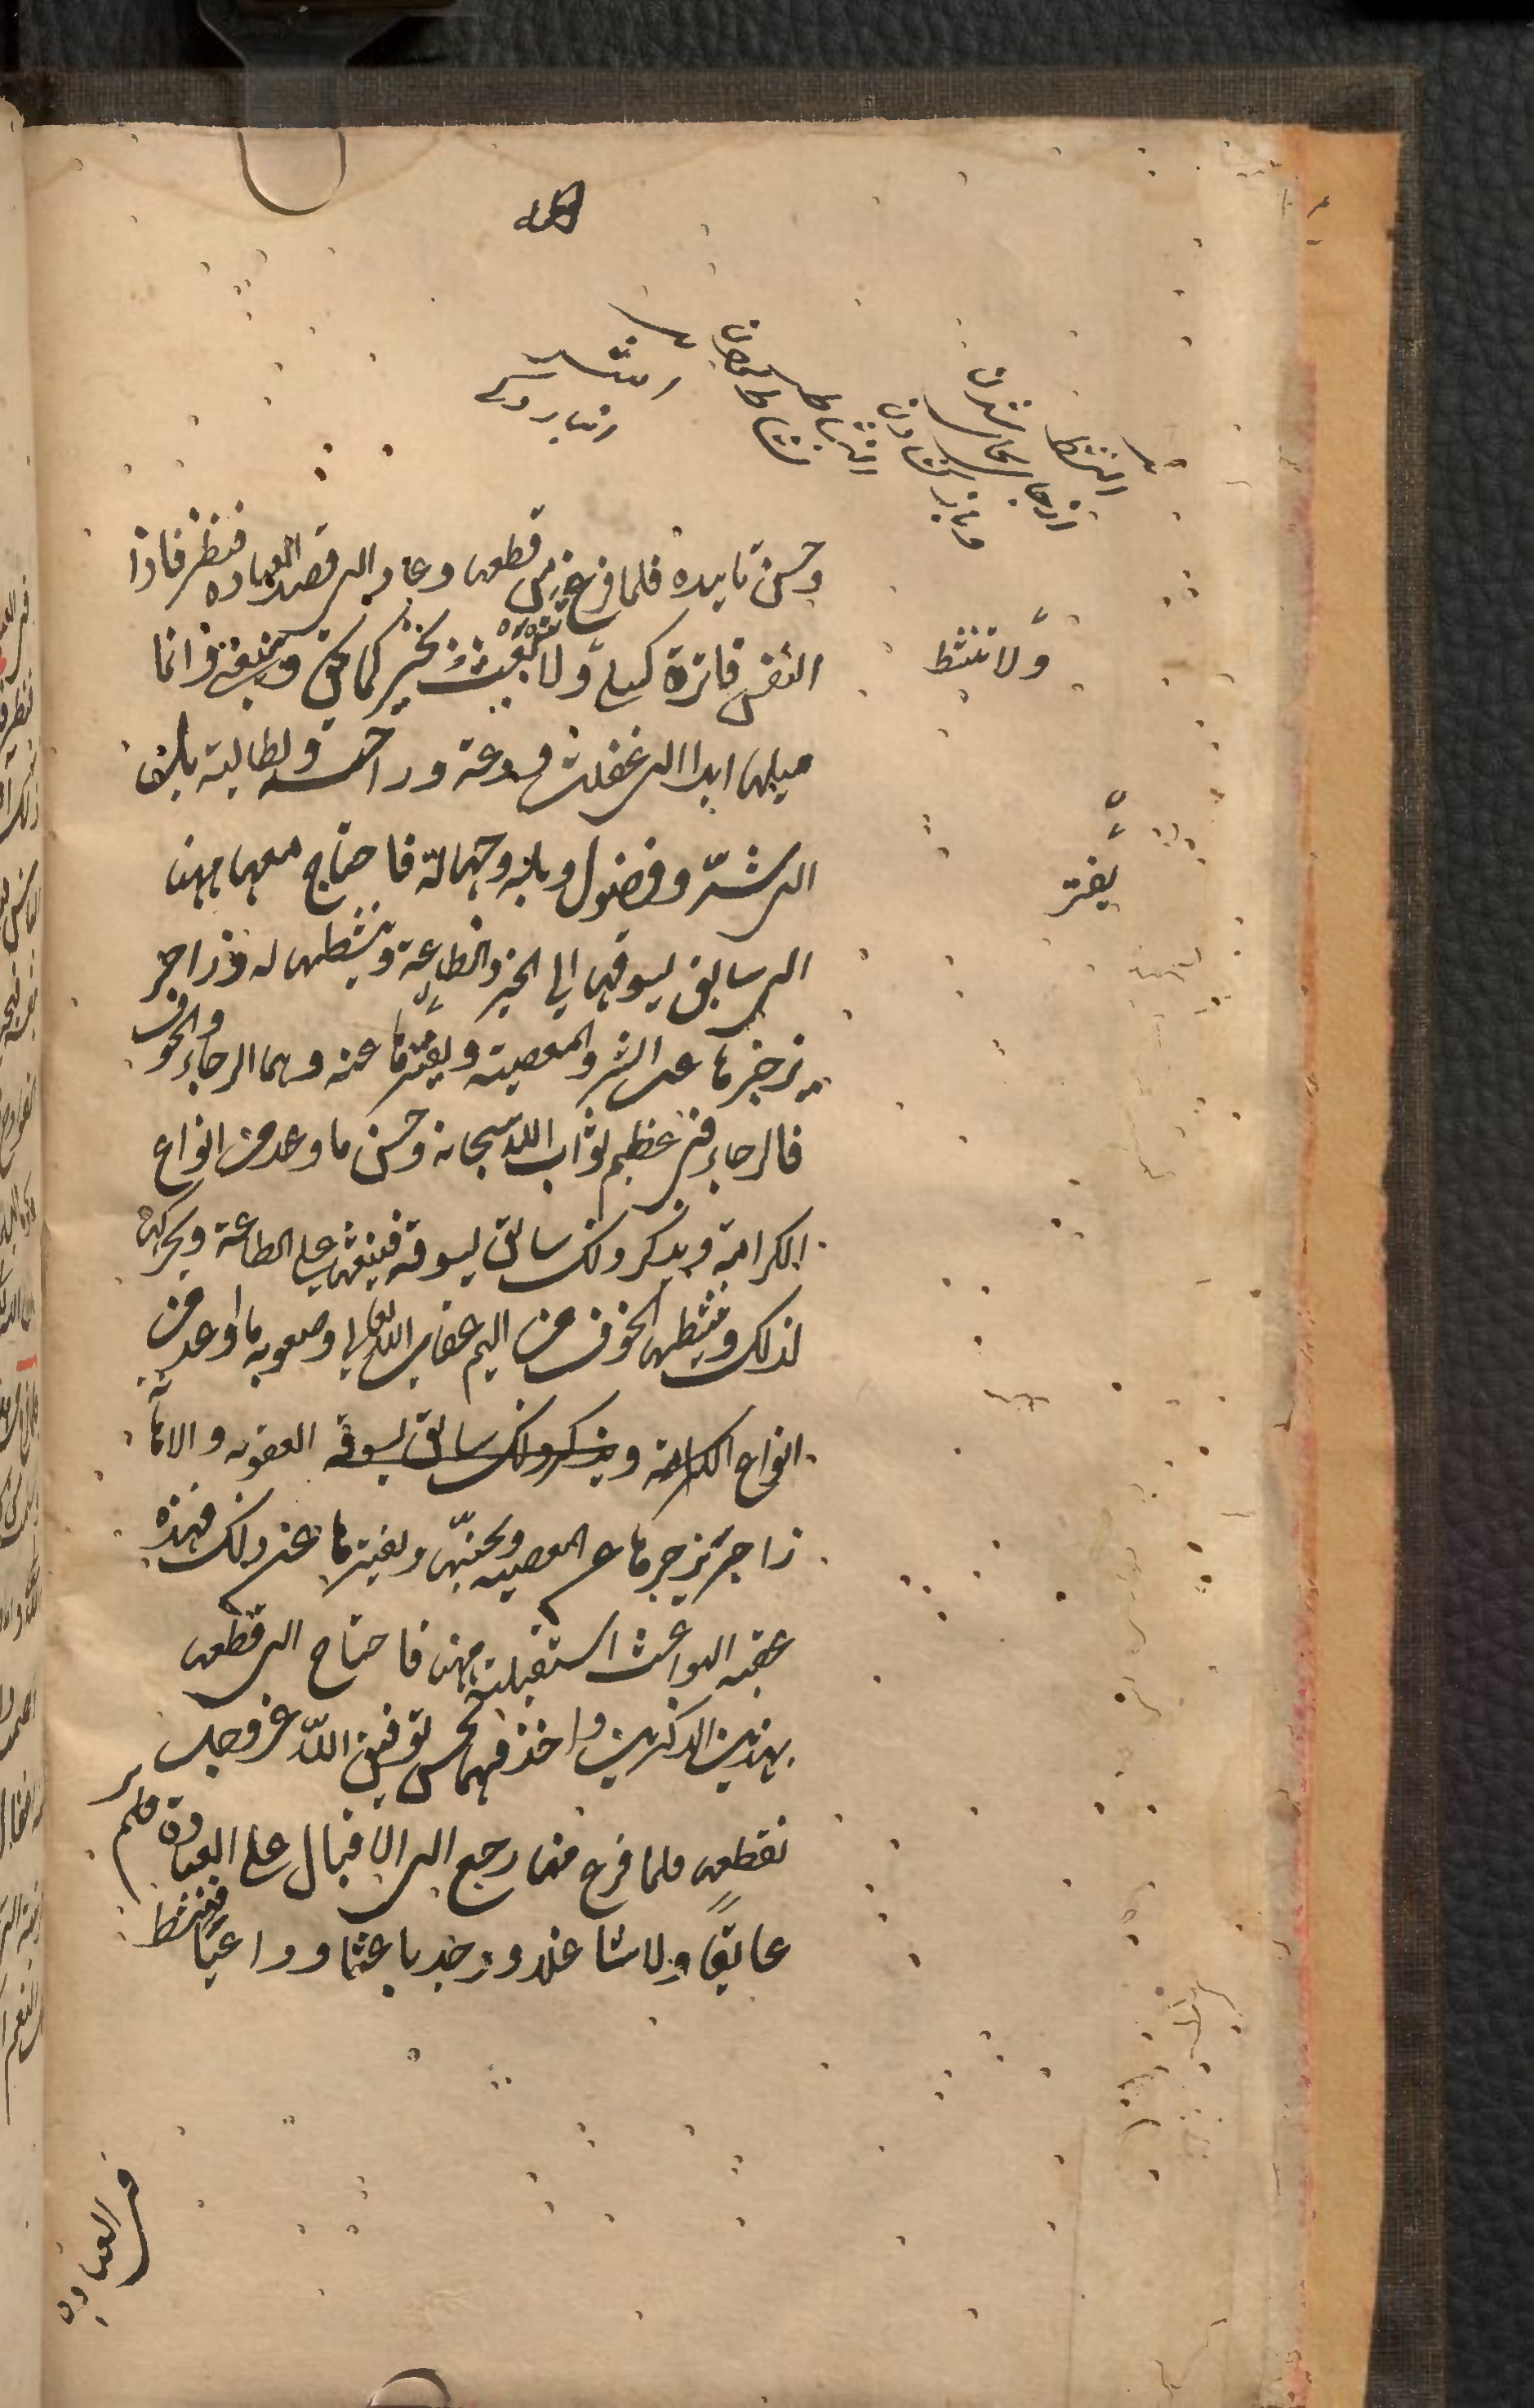 النشط
النشاط
نشاط
وحسن تاييده فلما فرغ من قطعها وعاد الى قصد العباده فنظر فاذا
النفس فاترة كسلى ولا تنبعث لخير كما يحق وينبغى وانما
ولا تنشط
ميلها ابدا الى غفلة ودعة وراحة وبطالة بل
الى شرّ وفضول وبلية وجهالة فاحتاج معها ههنا
يفتر
الى سايق يسوقها الى الخير والطاعة وينشطها له وزاجر
يزجرها عن الشر والمعصية ويفترها عنه وهما الرجاء والخوف
فالرجاء فى عظيم ثواب الله سبحانه وحسن ما وعد من انواع
الكرامة ويذكر ذلك سائق يسوقه فيبعثها على الطاعة ويحركها
لذلك وينشطها الخوف من اليم عقاب الله تعالى وصعوبه ما اوعد من
انواع الكرامة ويذكر ذلك سائق يسوقه العقوبه والاهانة
زاجر يزجرها عن المعصيه ويجنبّها ويفترها عند ذلك فهذه
عقبة البواعث استقبلته ههنا فاحتاج الى قطعها
بهذين الذكرين واخذ فيها بحسن توفيق الله عز وجل
فقطعها فلما فرغ منها رجع الى الاقبال على العبادة فلم ير
عايقا ولا شاغلا ووجد باعثا وداعيا فنشط
فى العباده